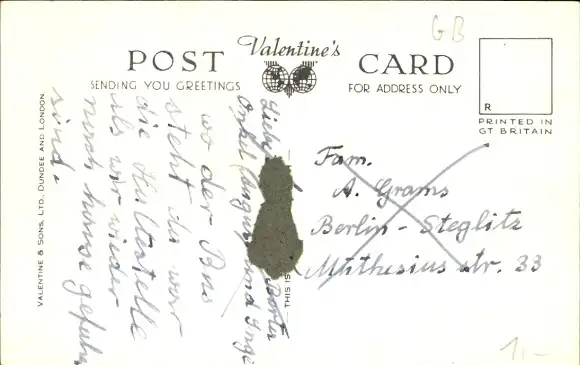 GB
POST Valentine's CARD
SENDING YOU GREETINGS
FOR ADDRESS ONLY
R
PRINTED IN
GT BRITAIN
VALENTINE & SONS, LTD., DUNDEE AND LONDON
THIS IS
Onkel und Inge
wo der Bus
steht da war
die Haltestelle
als wir wieder
nach hause gefahren
sind.
Fam.
A. Grams
Berlin - Steglitz
Muthesius str. 33
1,-